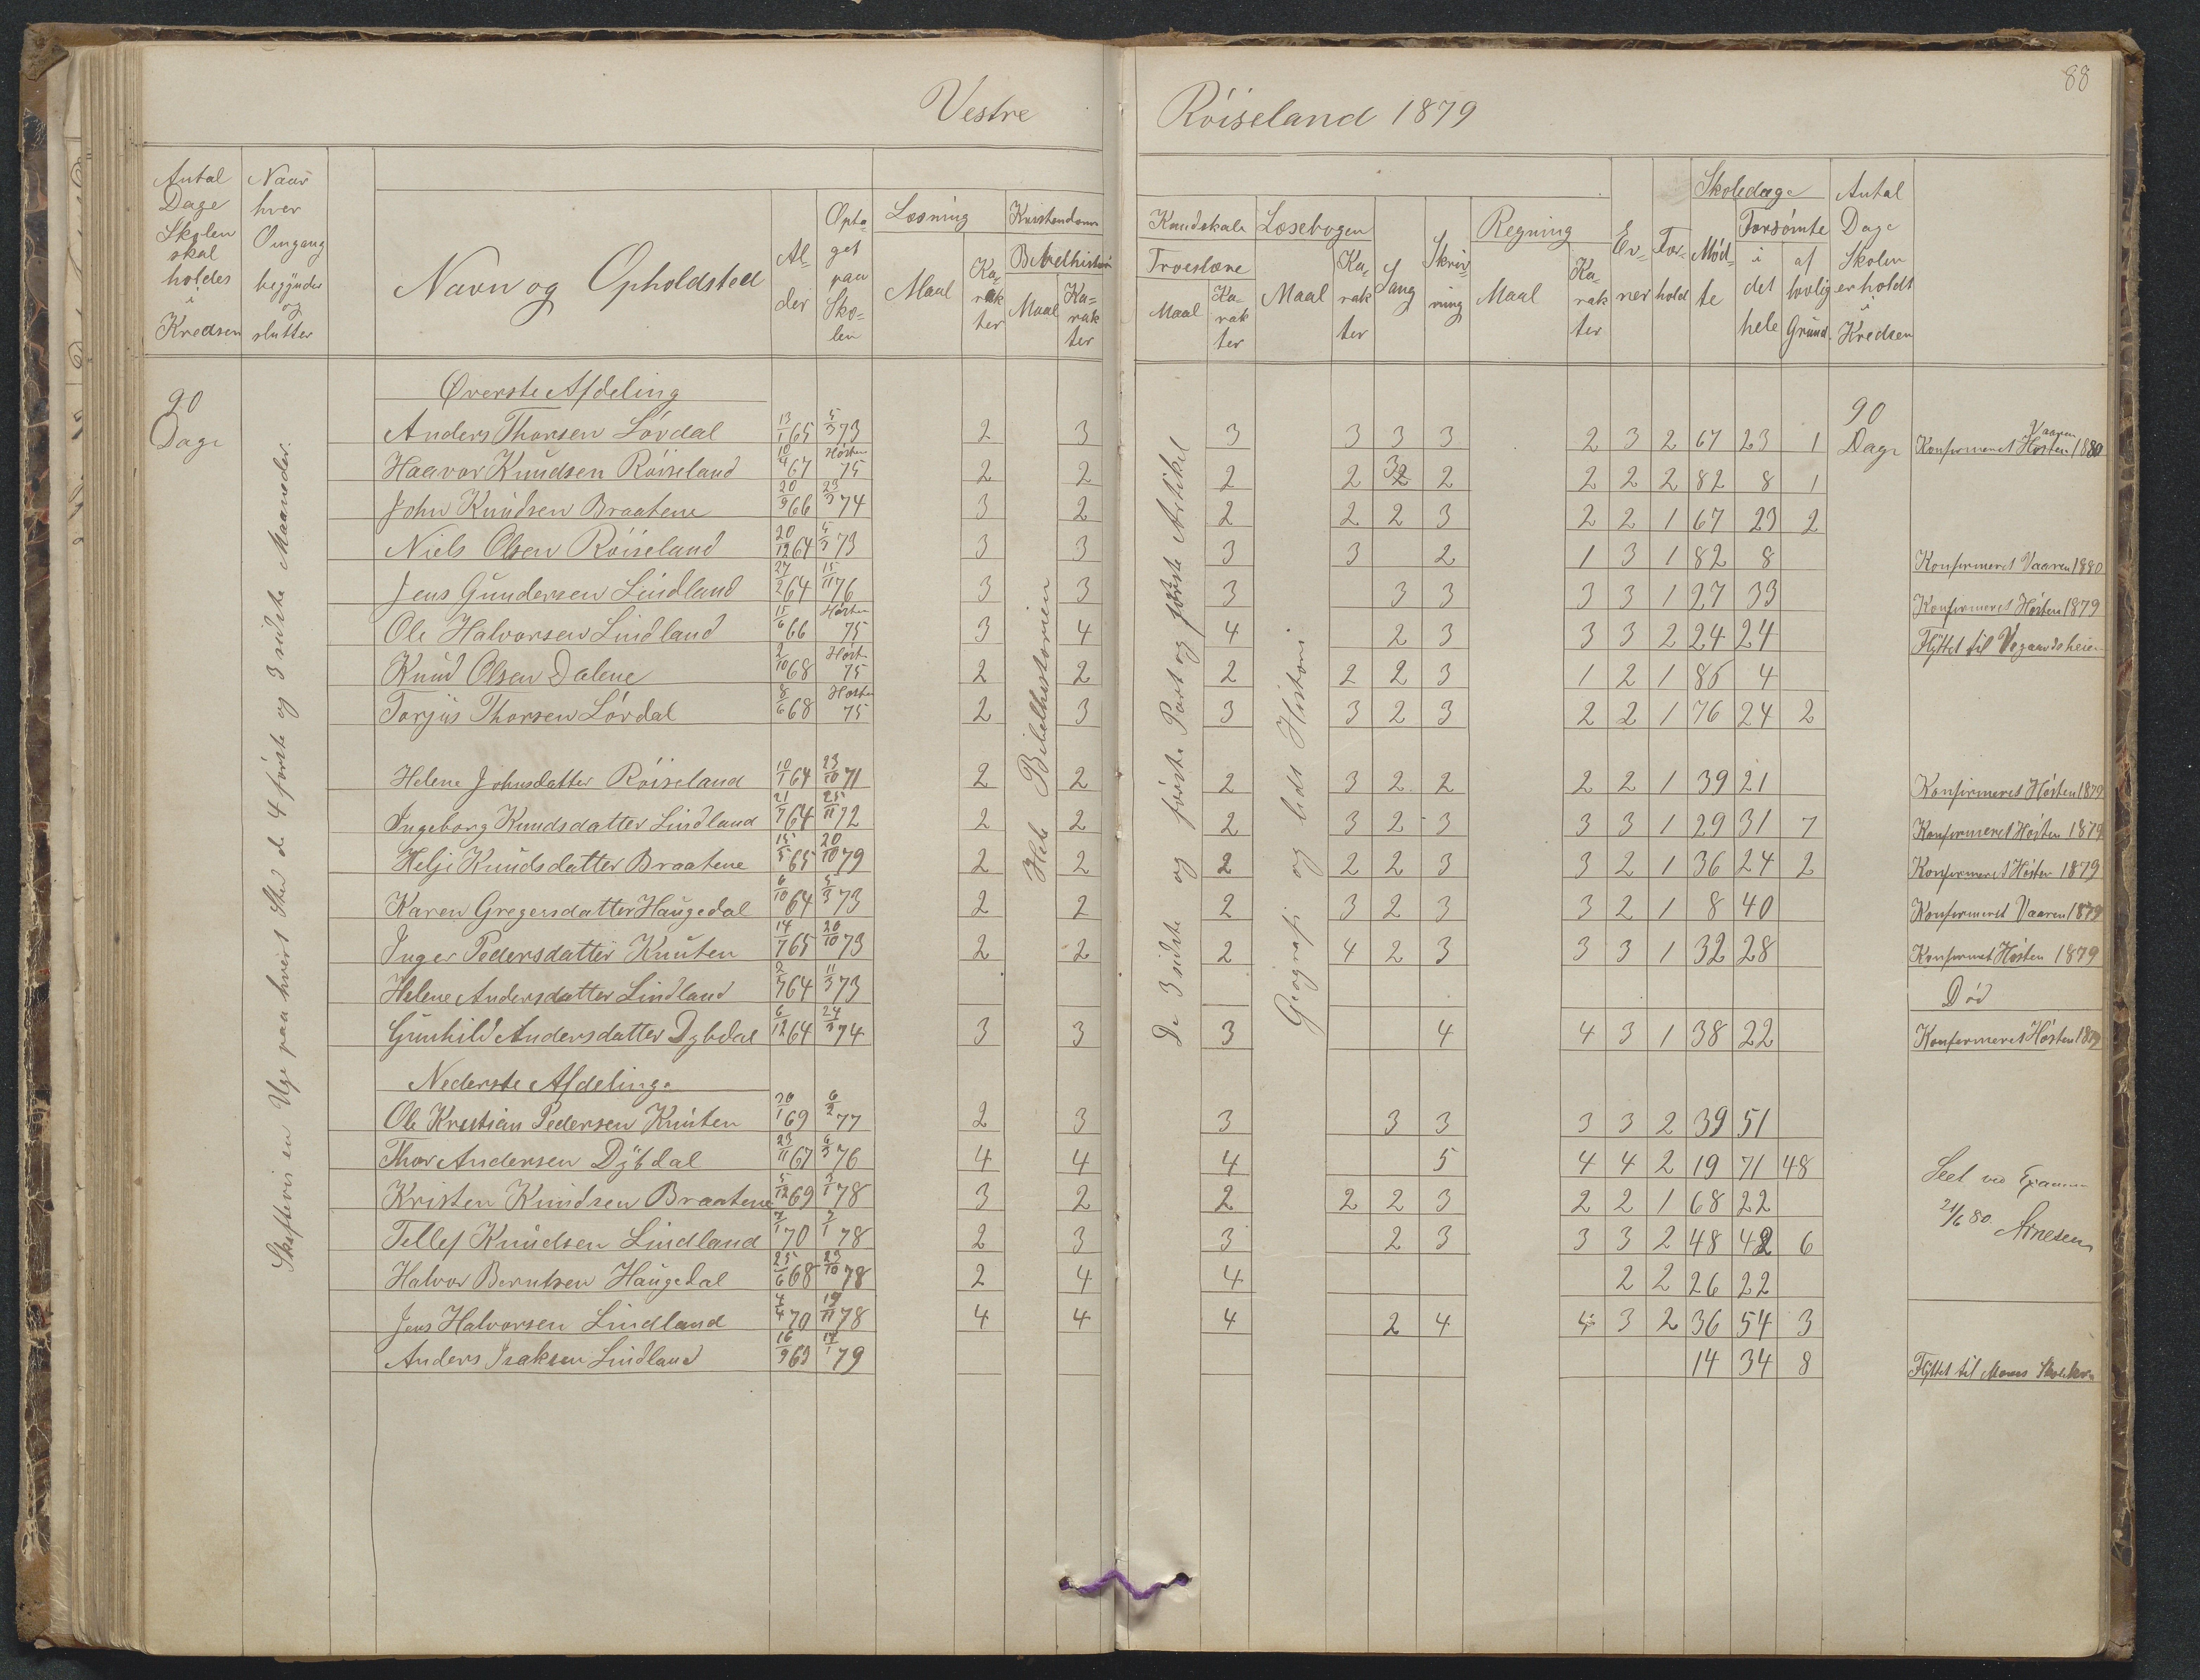 88
Vestre Röiseland 1879
Antal Dage Skolen skal holdes i Kredsen
Naar hver Omgang begynder og slutter
Navn og Opholdsted
Alder
Optaget paa Skolen
Læsning
Maal
Karakter
Kristendoms Kundskab
Bibelhistorie
Maal
Karakter
Troeslære
Maal
Karakter
Læsebogen
Maal
Karakter
Sang
Skrivning
Regning
Maal
Karakter
Evner
Forhold
Skoledage
Mødte
Forsömte
i det hele
af lovlig Grund.
Antal Dage Skolen er holdt i Kredsen
90 Dage
Skiftevis en Uge paa hvert Sted de 4 første og 3 sidste Maaneder.
Hele Bibelhistorien
De 3 sidste og første Part og første Artikel
Geografi og lidt Historie
90 Dage
Øverste Afdeling
Anders Thorsen Lövdal 13/1 65 5/3 73 2 3 3 3 3 3 2 3 2 67 23 1 Konfirmeret Høsten Vaaren 1880
Haavor Knudsen Röiseland 10/4 67 Høsten 75 2 2 2 2 32 2 2 2 2 82 8 1
John Knudsen Braatene 20/9 66 23/3 74 3 2 2 2 2 3 2 2 1 67 23 2
Niels Olsen Röiseland 20/12 64 5/3 73 3 3 3 3 2 1 3 1 82 8 Konfirmeret Vaaren 1880
Jens Gundersen Lindland 27/2 64 15/11 76 3 3 3 3 3 3 3 1 27 33 Konfirmeret Høsten 1879
Ole Halvorsen Lindland 15/6 66 Høsten 75 3 4 4 2 3 3 3 2 24 24 Flyttet til Vegaardsheien
Knud Olsen Dalene 2/10 68 Høst. 75 2 2 2 2 2 3 1 2 1 86 4
Torjus Thorsen Lövdal 8/6 68 Høsten 75 2 3 3 3 2 3 2 2 1 76 24 2
Helene Johnsdatter Röiseland 10/1 64 23/10 71 2 2 2 3 2 2 2 2 1 39 21 Konfirmeret Høsten 1879
Ingeborg Knudsdatter Lindland 21/7 64 25/11 72 2 2 2 3 2 3 3 3 1 29 31 7 Konfirmeret Høsten 1879
Helje Knudsdatter Braatene 15/5 65 20/10 79 2 2 2 2 2 3 3 2 1 36 24 2 Konfirmeret Høsten 1879
Karen Gregersdatter Haugedal 6/10 64 5/3 73 2 2 2 3 2 3 3 2 1 8 40 Konfirmeret Vaaren 1879
Inger Pedersdatter Knuten 14/7 65 20/10 73 2 2 2 4 2 3 3 3 1 32 28 Konfirmet Høsten 1879
Helene Andersdatter Lindland 64 11/3 73 Död
Gunhild Andersdatter Dybdal 6/12 64 24/3 74 3 3 3 4 4 3 1 38 22 Konfirmeret Høsten 1879
Nederste Afdeling.
Ole Kristian Pedersen Knuten 30/1 69 6/2 77 2 3 3 3 3 3 3 2 39 51
Thor Andersen Dybdal 23/11 67 6/3 76 4 4 4 5 4 4 2 19 71 48
Kristen Knudsen Braatene 5/12 69 3/1 78 3 2 2 2 2 3 2 2 1 68 22
Tellef Knudsen Lindland 7/1 70 7/1 78 2 3 3 2 3 3 3 2 48 42 6
Halvor Berntsen Haugedal 25/6 68 23/10 78 2 4 4 2 2 26 22
Jens Halvorsen Lindland 4/4 70 19/11 78 4 4 4 2 4 4 3 2 36 54 3
Anders Isaksen Lindland 16/9 69 14/1 79 14 34 8 Flyttet til Moens Skolekr.
Seet ved Examen
21/6 80. Arnesen